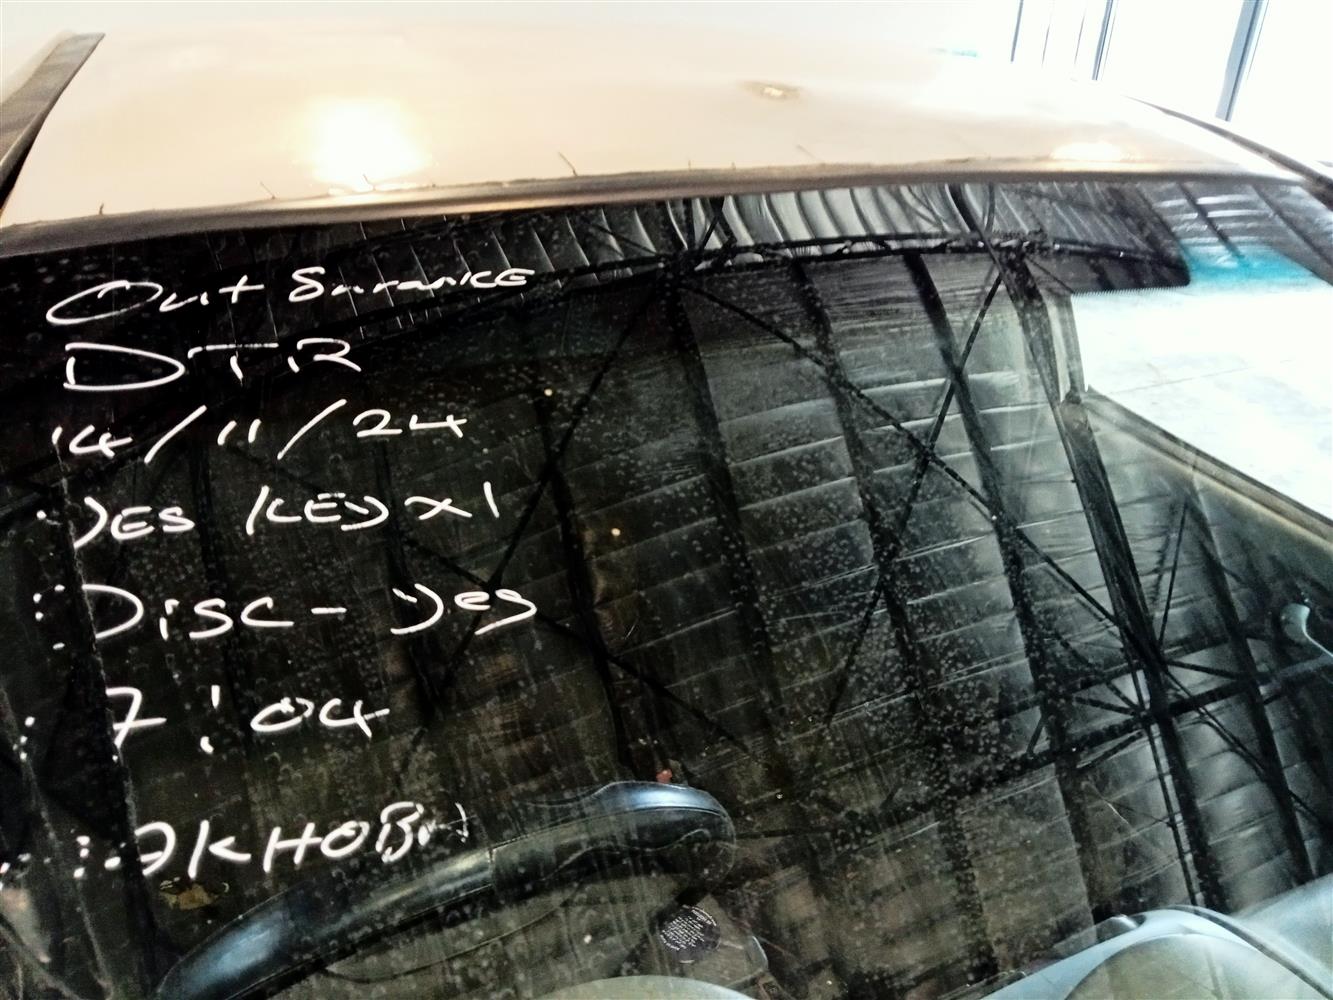 Outsurance
DTR
14/11/24
YES KEY X1
DISC - Yes
7:04